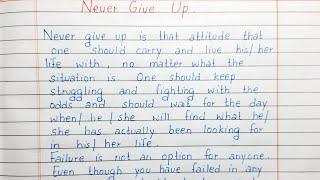 Never Give Up.
Never give up is that attitude that
one should carry and live his/her
life with, no matter what the
situation is. One should keep
struggling and fighting with the
odds and should wait for the day
when/he/she will find what he/
she has actually been looking for
in his/her life.
Failure is not an option for anyone.
Even though you have failed in any